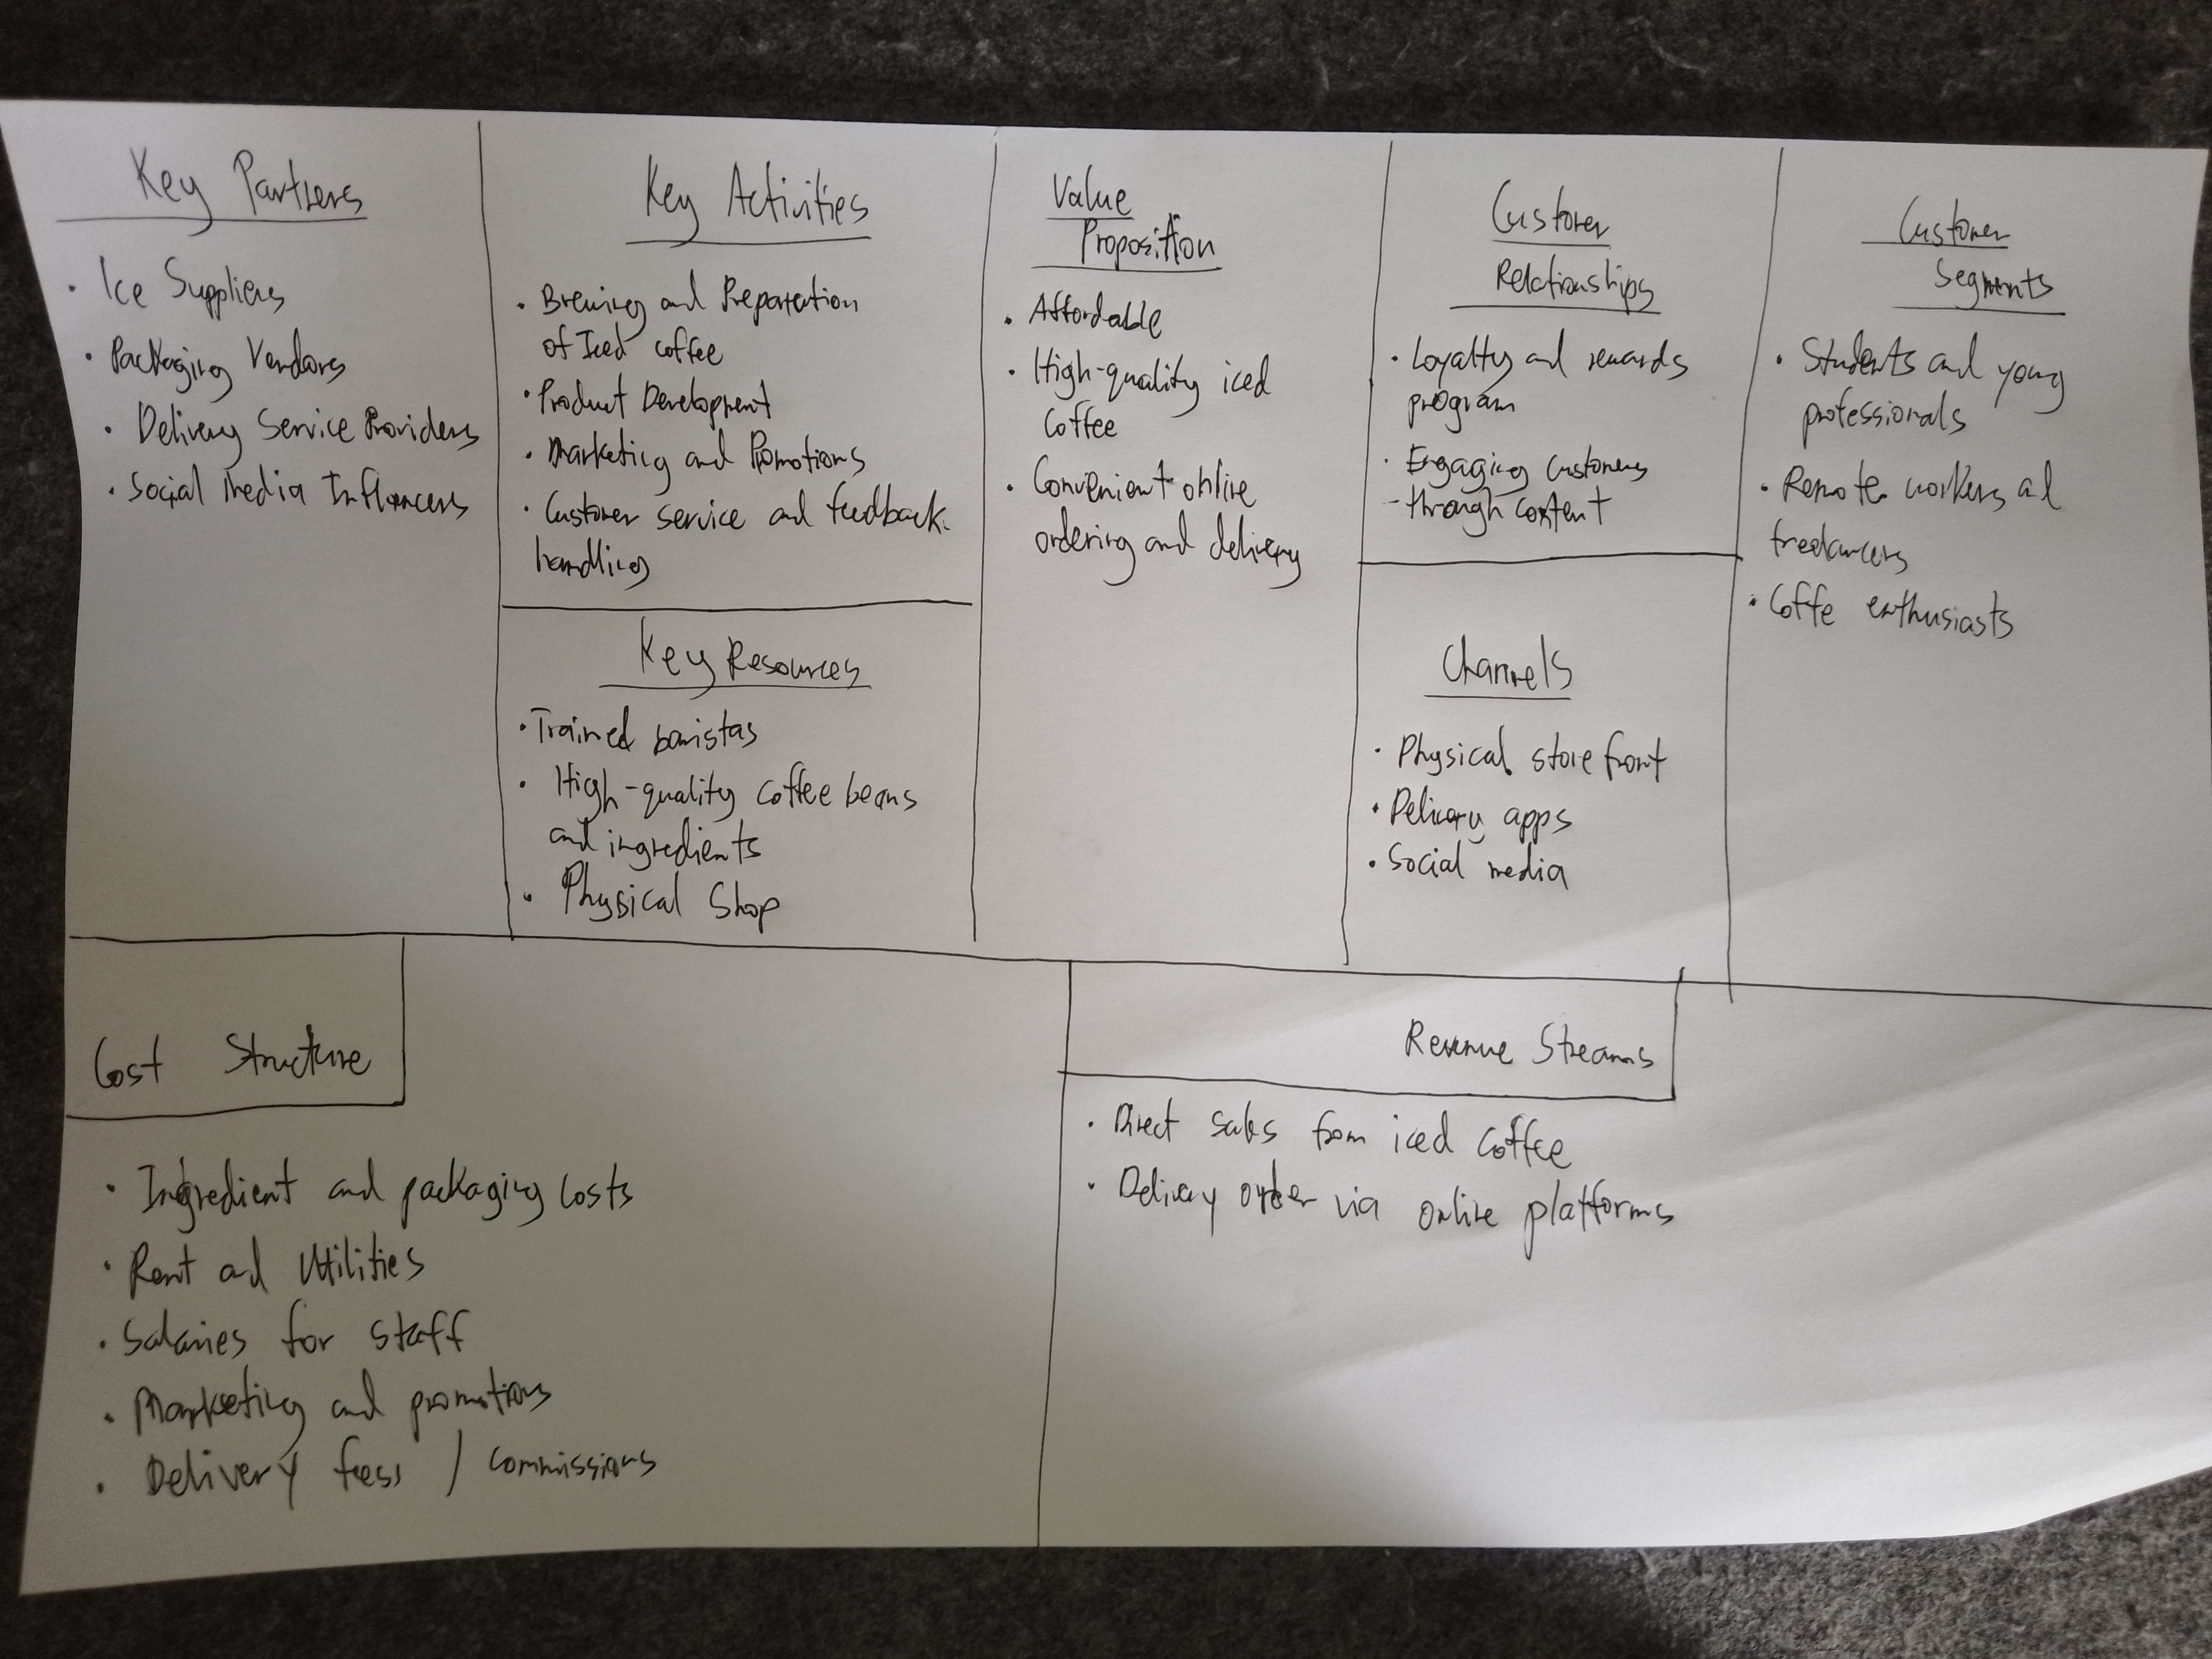 Key Partners
• Ice Suppliers
• Packaging Vendors
• Delivery Service Providers
• Social Media Influencers
Key Activities
• Brewing and Preparation
of Iced coffee
• Product Development
• Marketing and Promotions
• Customer service and feedback
handling
Key Resources
• Trained baristas
• High-quality coffee beans
and ingredients
• Physical Shop
Value
Proposition
• Affordable
• High-quality iced
Coffee
• Convenient online
ordering and delivery
Customer
Relationships
• Loyalty and rewards
program
• Engaging customers
- through content
Channels
• Physical store front
• Delivery apps
• Social media
Customer
Segments
• Students and young
professionals
• Remote workers and
freelancers
• Coffe enthusiasts
Cost Structure
• Ingredient and packaging costs
• Rent and Utilities
• Salaries for staff
• Marketing and promotions
• Delivery fees / commissions
Revenue Streams
• Direct sales from iced coffee
• Delivery order via online platforms